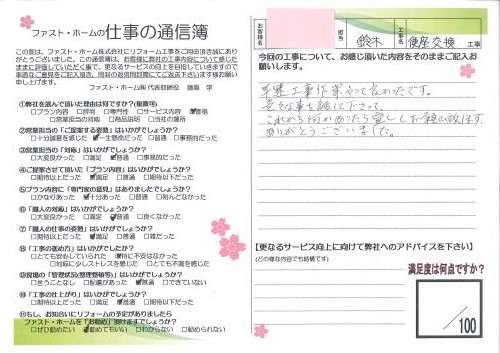 ファスト・ホームの仕事の通信簿
この度は、ファスト・ホーム株式会社にリフォーム工事をご用命頂き誠にあり
がとうございました。この通信簿は、お客様に弊社の工事内容について感じた
ままに評価していただく事で、更なるサービスの向上を目指していきますので
率直なご意見をご記入頂き、同封の返信用封筒にてご返送下さいます様お願い
申し上げます。
ファスト・ホーム㈱ 代表取締役 藤原 学
①弊社を選んで頂いた理由は何ですか?(複数可)
□プラン内容 □評判 □専門性 □サービス内容 価格
□営業担当の対応 □商品説明 □当社の場所
②営業担当の「ご提案する姿勢」はいかがでしょうか?
□十分誠意を感じた 一生懸命だった □普通 □事務的だった
③営業担当の「対応」はいかがでしょうか?
□大変良かった □満足 普通 □事務的だった
④ご提案させて頂いた「プラン内容」はいかがでしょうか?
□期待以上だった 満足 □普通 □期待以下だった
⑤プラン内容に「専門家の意見」はありましたでしょうか?
□かなりあった 十分あった □普通 □殆んどなかった
⑥「職人の対応」はいかがでしょうか?
□大変良かった □満足 普通 □良くなかった
⑦「職人の仕事の姿勢」はいかがでしょうか?
□期待以上だった 満足 □普通 □雑だった
⑧「工事の進め方」はいかがでしたか?
□とても安心していられた 特に不安はなかった
□対応に少しストレスを感じた □とても不満を感じた
⑨現場の「管理状況(整理整頓等)」はいかがでしょうか?
□言うことなし □配慮があった 普通 □できていない
⑩「工事の仕上がり」はいかがでしょうか?
□期待以上だった 満足 □普通 □期待以下だった
⑪もし、お知合いにリフォームの予定がありましたら
ファスト・ホームを「お勧め」頂けますでしょうか?
□ぜひ勧めたい 勧めてもいい □わからない □勧められない
お客様名
担当 鈴木 工事名 便座交換 工事
今回の工事について、お感じ頂いた内容をそのままご記入お
願いします。
早速工事作業やって良かったです。
これから何かあったら宜しくお願い致します。
ありがとうございました。
【更なるサービス向上に向けて弊社へのアドバイスを下さい】
(どの様な内容でも結構です)
満足度は何点ですか?
/100